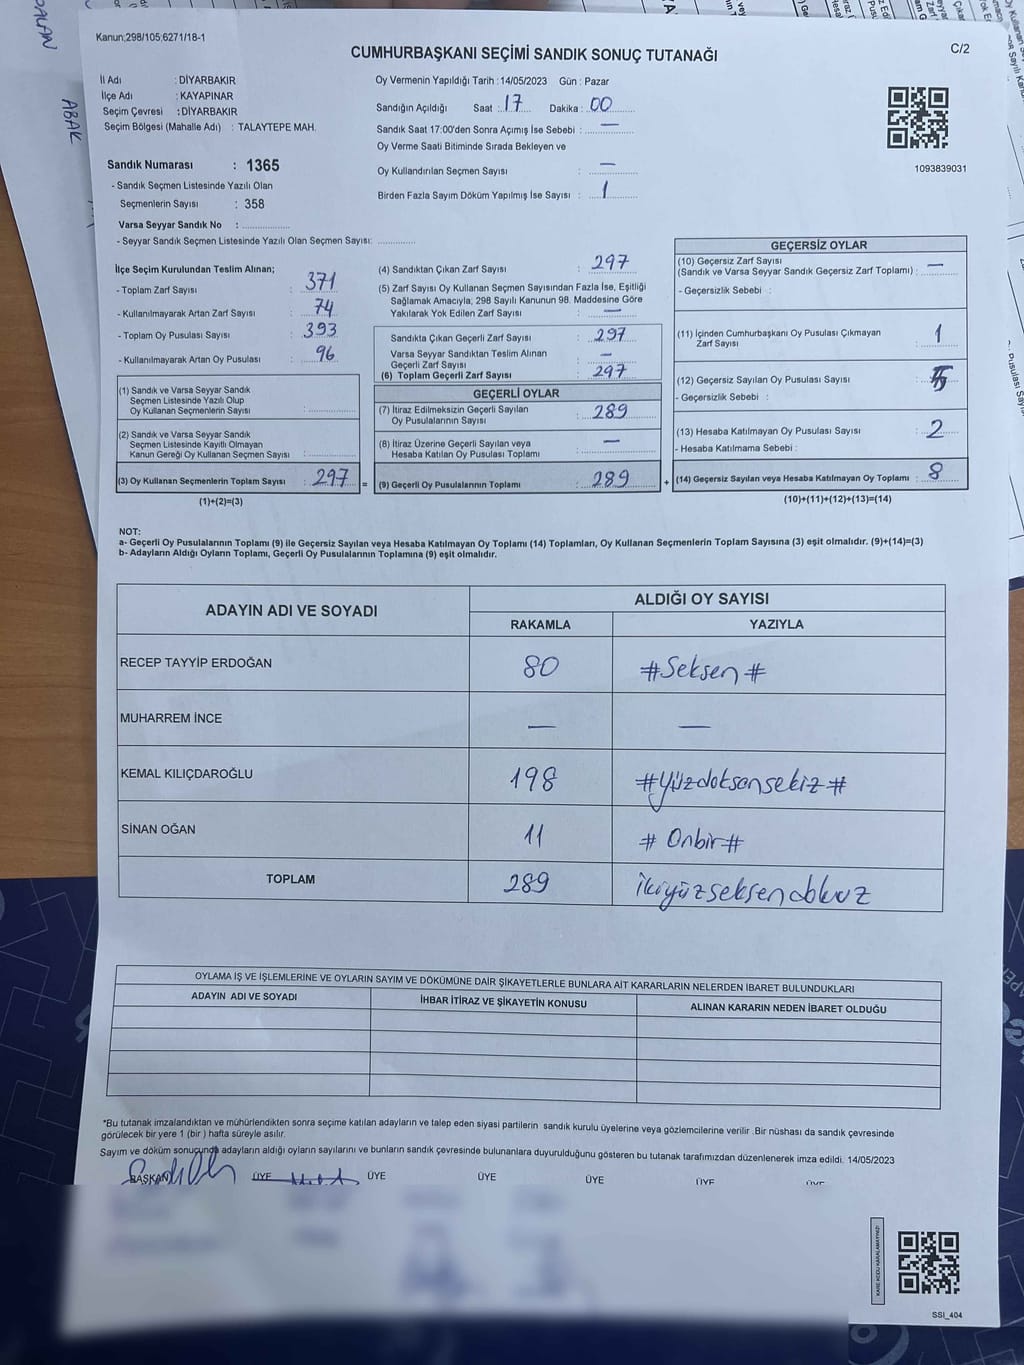 Kanun;298/105;6271/18-1
CUMHURBAŞKANI SEÇİMİ SANDIK SONUÇ TUTANAĞI
C/2
İl Adı : DİYARBAKIR
İlçe Adı : KAYAPINAR
Seçim Çevresi : DİYARBAKIR
Seçim Bölgesi (Mahalle Adı) : TALAYTEPE MAH.
Sandık Numarası : 1365
- Sandık Seçmen Listesinde Yazılı Olan
Seçmenlerin Sayısı : 358
Varsa Seyyar Sandık No : ................
- Seyyar Sandık Seçmen Listesinde Yazılı Olan Seçmen Sayısı: .............
Oy Vermenin Yapıldığı Tarih : 14/05/2023 Gün : Pazar
Sandığın Açıldığı Saat : 17 Dakika : 00
Sandık Saat 17:00'den Sonra Açımış İse Sebebi : —
Oy Verme Saati Bitiminde Sırada Bekleyen ve
Oy Kullandırılan Seçmen Sayısı : —
Birden Fazla Sayım Döküm Yapılmış İse Sayısı : 1
1093839031
İlçe Seçim Kurulundan Teslim Alınan;
- Toplam Zarf Sayısı : 371
- Kullanılmayarak Artan Zarf Sayısı : 74
- Toplam Oy Pusulası Sayısı : 393
- Kullanılmayarak Artan Oy Pusulası : 96
(1) Sandık ve Varsa Seyyar Sandık
Seçmen Listesinde Yazılı Olup
Oy Kullanan Seçmenlerin Sayısı :
(2) Sandık ve Varsa Seyyar Sandık
Seçmen Listesinde Kayıtlı Olmayan
Kanun Gereği Oy Kullanan Seçmen Sayısı :
(3) Oy Kullanan Seçmenlerin Toplam Sayısı : 297 =
(1)+(2)=(3)
(4) Sandıktan Çıkan Zarf Sayısı : 297
(5) Zarf Sayısı Oy Kullanan Seçmen Sayısından Fazla İse, Eşitliği
Sağlamak Amacıyla; 298 Sayılı Kanunun 98. Maddesine Göre
Yakılarak Yok Edilen Zarf Sayısı : —
Sandıkta Çıkan Geçerli Zarf Sayısı : 297
Varsa Seyyar Sandıktan Teslim Alınan
Geçerli Zarf Sayısı : —
(6) Toplam Geçerli Zarf Sayısı : 297
GEÇERLİ OYLAR
(7) İtiraz Edilmeksizin Geçerli Sayılan
Oy Pusulalarının Sayısı : 289
(8) İtiraz Üzerine Geçerli Sayılan veya
Hesaba Katılan Oy Pusulası Toplamı : —
(9) Geçerli Oy Pusulalarının Toplamı : 289 +
GEÇERSİZ OYLAR
(10) Geçersiz Zarf Sayısı
(Sandık ve Varsa Seyyar Sandık Geçersiz Zarf Toplamı) : —
- Geçersizlik Sebebi :
(11) İçinden Cumhurbaşkanı Oy Pusulası Çıkmayan
Zarf Sayısı : 1
(12) Geçersiz Sayılan Oy Pusulası Sayısı : 5
- Geçersizlik Sebebi :
(13) Hesaba Katılmayan Oy Pusulası Sayısı : 2
- Hesaba Katılmama Sebebi :
(14) Geçersiz Sayılan veya Hesaba Katılmayan Oy Toplamı : 8
(10)+(11)+(12)+(13)=(14)
NOT:
a- Geçerli Oy Pusulalarının Toplamı (9) ile Geçersiz Sayılan veya Hesaba Katılmayan Oy Toplamı (14) Toplamları, Oy Kullanan Seçmenlerin Toplam Sayısına (3) eşit olmalıdır. (9)+(14)=(3)
b- Adayların Aldığı Oyların Toplamı, Geçerli Oy Pusulalarının Toplamına (9) eşit olmalıdır.
ADAYIN ADI VE SOYADI
ALDIĞI OY SAYISI
RAKAMLA YAZIYLA
RECEP TAYYİP ERDOĞAN 80 #Seksen#
MUHARREM İNCE — —
KEMAL KILIÇDAROĞLU 198 #Yüzdoksansekiz#
SİNAN OĞAN 11 #Onbir#
TOPLAM 289 ikiyüzseksendokuz
OYLAMA İŞ VE İŞLEMLERİNE VE OYLARIN SAYIM VE DÖKÜMÜNE DAİR ŞİKAYETLERLE BUNLARA AİT KARARLARIN NELERDEN İBARET BULUNDUKLARI
ADAYIN ADI VE SOYADI İHBAR İTİRAZ VE ŞİKAYETİN KONUSU ALINAN KARARIN NEDEN İBARET OLDUĞU
*Bu tutanak imzalandıktan ve mühürlendikten sonra seçime katılan adayların ve talep eden siyasi partilerin sandık kurulu üyelerine veya gözlemcilerine verilir .Bir nüshası da sandık çevresinde
görülecek bir yere 1 (bir ) hafta süreyle asılır.
Sayım ve döküm sonucunda adayların aldığı oyların sayılarını ve bunların sandık çevresinde bulunanlara duyurulduğunu gösteren bu tutanak tarafımızdan düzenlenerek imza edildi. 14/05/2023
BAŞKAN ÜYE ÜYE ÜYE ÜYE ÜYE ÜYE
KARE KODU KARALAMAYINIZ!
SSI_404